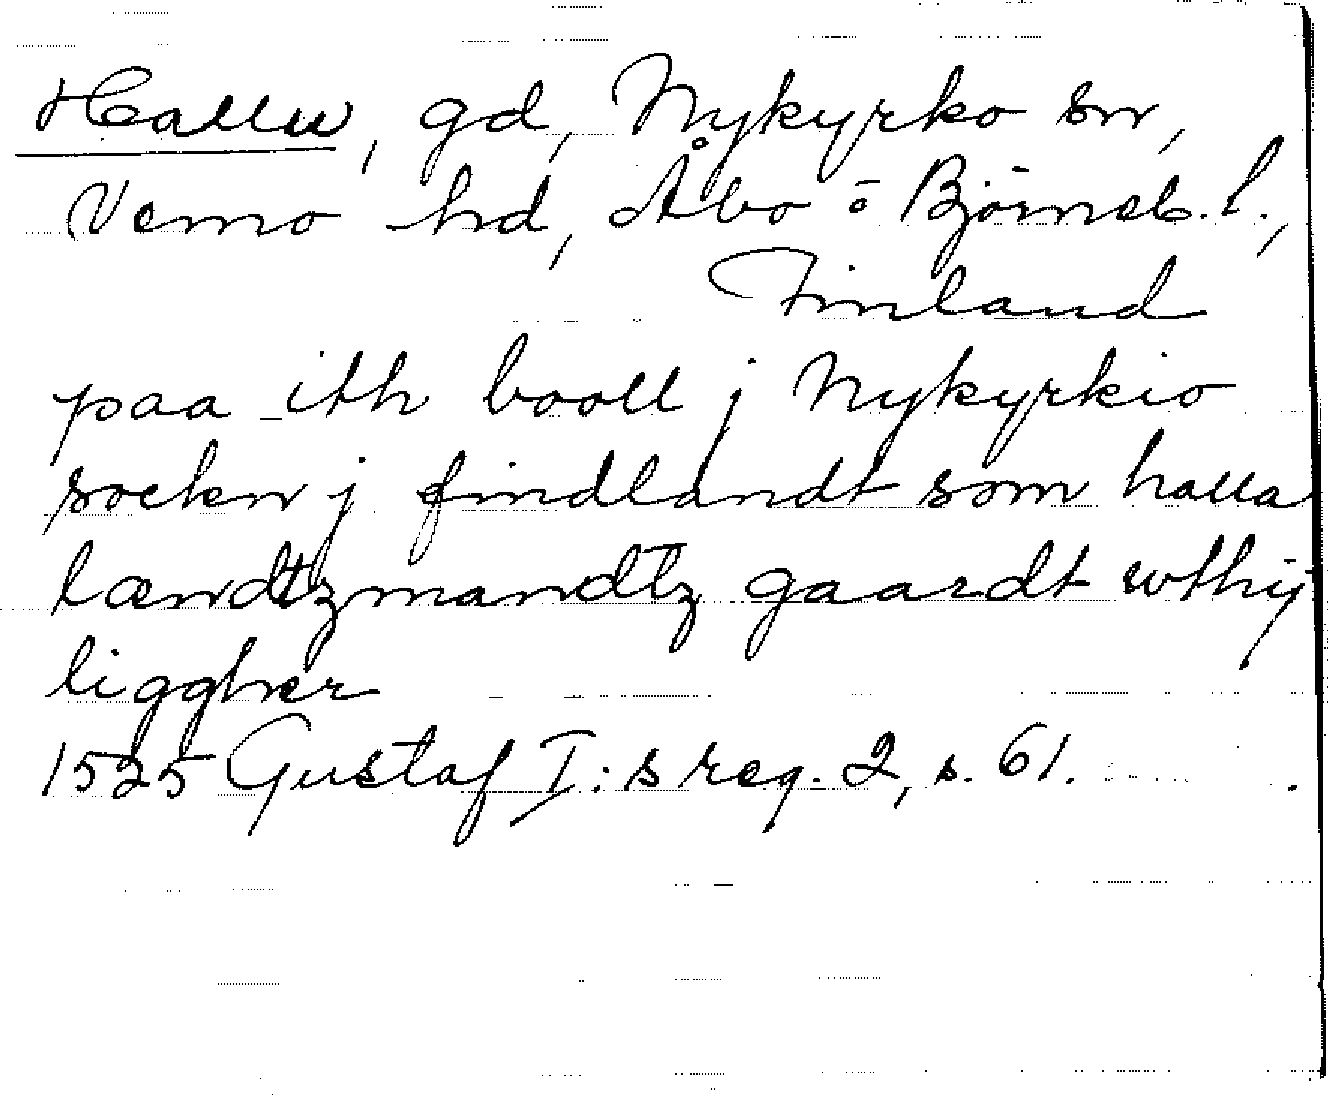 Hallu, gd, Nykyrko sn,
Vemo hd, Åbo o Björneb. l.,
Finland
paa ith booll j Nykyrkio
sockn j findlandt som halla
lændtzmandtz gaardt wthij
liggher
1525 Gustaf I:s reg. 2, s. 61.